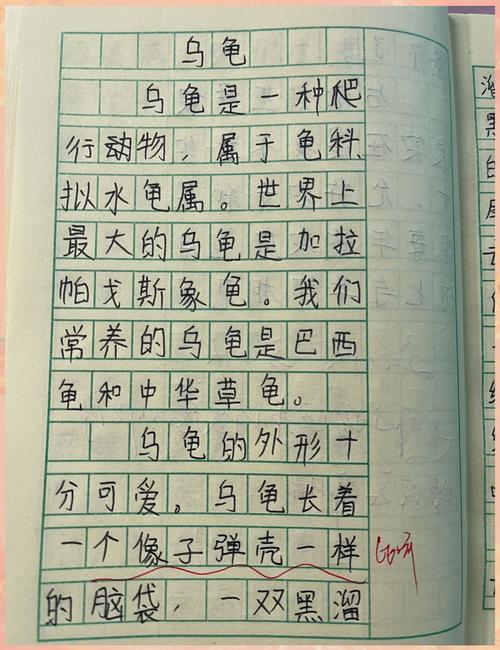 乌龟
乌龟是一种爬
行动物，属于龟科、
拟水龟属。世界上
最大的乌龟是加拉
帕戈斯象龟。我们
常养的乌龟是巴西
龟和中华草龟。
乌龟的外形十
分可爱。乌龟长着
一个像子弹壳一样
的脑袋，一双黑溜